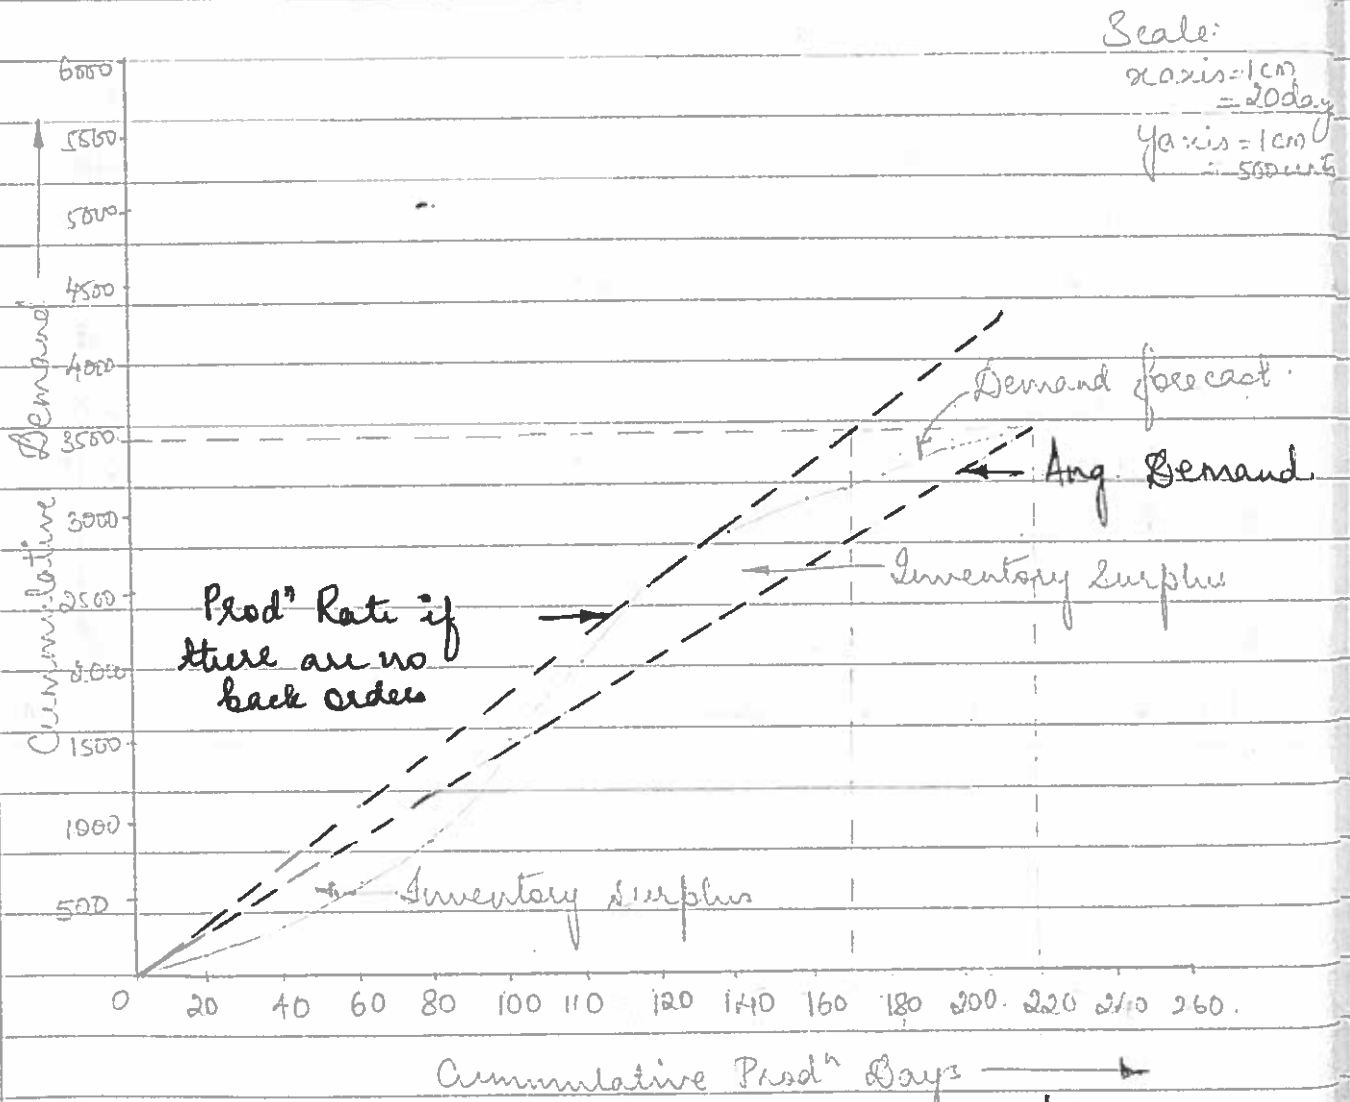 Scale:
x axis = 1 cm
= 20 day
Y axis = 1 cm
= 500 units
6000
5500
5000
4500
4000
3500
3000
2500
2000
1500
1000
500
Cummulative Demand
Demand forecast.
Avg. Demand
Inventory Surplus
Prodⁿ Rate if
there are no
back orders
Inventory Surplus
0 20 40 60 80 100 110 120 140 160 180 200. 220 240 260.
Cummulative Prodⁿ Days